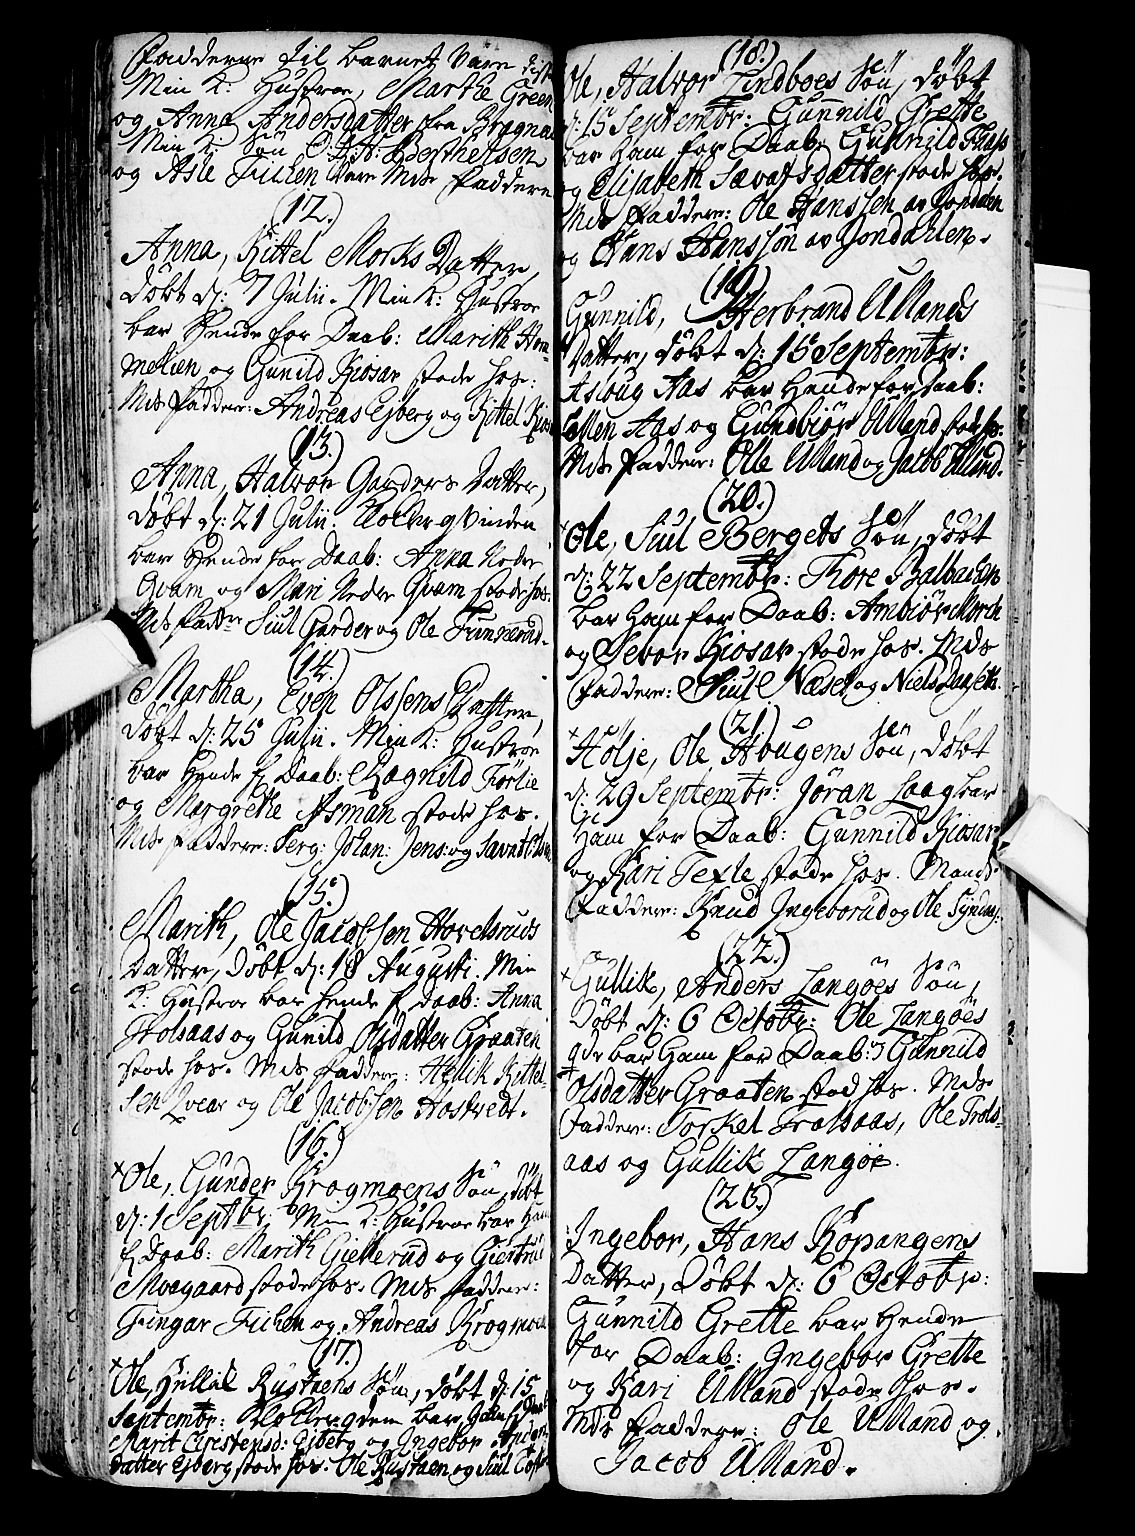 Fadderne til barnet vare
Min K: Hustroe, Marthe Green
og Anna Andersdatter fra Bragnæs
Min K: Søn O: Berthelsen
og Asle Fichen vare Mds Faddere
(12.)
Anna, Kittel Morks Datter,
døbt d: 7 Julii. Min K: Hustroe
bar Hende for Daab: Marith Hom-
melien og Gunild Kiosar stode hos:
Mds Fadder: Andreas Ejberg og Kittel Kios
(13.)
Anna, Halvor Garders Datter,
døbt d: 21 Julii. Klocherqvinden
bar Hende for Daab: Anna Neder
Qvam og Mari Neder Qvam stode hos.
Mds Fadder Siul Garder og Ole
(14.)
Martha, Even Olssens Datter,
døbt d: 25 Julii. Min K: Hustroe
bar Hende f Daab: Ragnild Fiørlie
og Margrethe Asman stode hos.
Mds Faddere: Serg: Johan: Jens: og
(15.)
Marith, Ole Jacobsen Hovelsruds
Datter, Døbt d: 18 Augusti. Min
K: Hustroe bar hende f Daab: Anna
Stolsaas og Gunild Olsdatter Graaten
stode hos. Mds Faddere: Hellik Kittel-
sen og Ole Jacobsen Hostvedt.
(16.)
Ole, Gunder Krogmoens Søn, døbt
d: 1 Septbr: Min K: Hustroe bar Ham
f Daab: Marith Giellerud og Giertrud
Moegaard stode hos. Mds Faddere:
Fingar Fichen og Andreas Krogmoen
(17.)
Ole, Hellik Rustaens Søn, døbt d: 15
Septembr: Klocherqden bar Ham f Daab
Marit Christensd: Ejberg og Ingebor Anders
datter Ejberg stode hos. Ole Rustaen og Siul
(18.)
Ole, Halvor Lindboes Søn, døbt
d: 15 Septembr: Gunnild Grette
bar Ham for Daab: Gunnild
og Elisabeth stode hos.
Mds Faddere: Ole Hanssen av Jondalen
og Hans Hanssøn av Jondahlen.
(19.)
Gunnild, Herbrand Ullands
Datter, døbt d: 15 Septembr:
Aslaug Aas bar Hende for Daab:
Ellen Aas og Gundbiør Ulland stode hos.
Mds Faddere: Olle Ulland og Jacob Ulland.
(20.)
Ole, Siul Bergets Søn, døbt
d: 22 September: Thore
bar Ham for Daab: Ambiør Morch
og Sebor Kiosar stode hos. Mds
Faddere: Siul Næset og Niels
(21.)
Hølje, Ole Houngens Søn, døbt
d: 29 Septembr: Jøran Laag bar
Ham for Daab: Gunnild Kiosar
og Kari Texle stode hos. Mands
Faddere: Knud Ingeborud og Ole
(22.)
Gullik, Anders Langøes Søn,
Døbt d: 6 Octobr: Ole Langøes
qde bar Ham for Daab: Gunnild
Olsdatter Graaten stod hos. Mds
Faddere: Torkel Trolsaas, Ole Trols-
aas og Gullik Langøe.
(23.)
Ingebor, Hans Kopangens
Datter, Døbt d: 6 Octobr:
Gunnild Grette bar Hende
for Daab: Ingebor Grette
og Kari Ulland stode hos.
Mds Faddere: Ole Ulland og
Jacob Ulland.